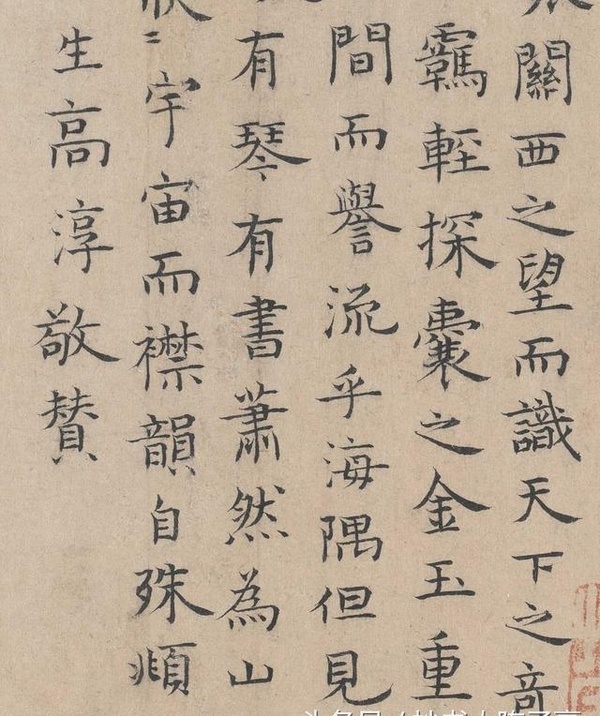 關西之望而識天下之奇
羈輕探囊之金玉重
間而譽流乎海隅但見
有琴有書蕭然為山
〻宇宙而襟韻自殊頫
生高淳敬贊